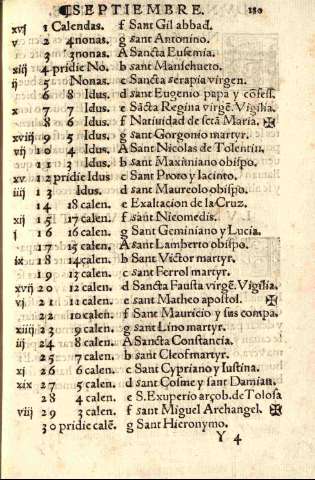 ¶SEPTIEMBRE. 180
xvj 1 Calendas. f Sant Gil abbad.
v 2 4nonas. g sant Antonino.
3 3nonas. A Sancta Eufemia.
xiij 4 pridie No. b sant Mansehueto.
ij 5 Nonas. c Sancta serapia virgen.
6 8 Idus. d sant Eugenio papa y cõfess.
x 7 7 Idus. e Sãcta Regina virgẽ. Vigilia.
8 6 Idus. f Natiuidad de sctã Maria. ✠
xviij 9 5 Idus. g sant Gorgonio martyr.
vij 10 4 Idus. A Sant Nicolas de Tolentin.
11 3 Idus. b sant Maximiano obispo.
xv 12 pridie Idus c Sant Proto y Iacinto.
iiij 13 Idus. d sant Maureolo obispo.
14 18 calen. e Exaltacion de la Cruz.
xij 15 17 calen. f sant Nicomedis.
j 16 16 calen. g Sant Geminiano y Lucia.
17 15 calen. A sant Lamberto obispo.
ix 18 14 calen. b Sant Victor martyr.
19 13 calen. c sant Ferrol martyr.
xvij 20 12 calen. d Sancta Fausta virgẽ. Vigilia.
vj 21 11 calen. e sant Matheo apostol. ✠
22 10 calen. f Sant Mauricio y sus compa.
xiiij 23 9 calen. g sant Lino martyr.
iij 24 8 calen. A Sancta Constancia.
25 7 calen. b sant Cleof martyr.
xj 26 6 calen. c Sant Cypriano y Iustina.
xix 27 5 calen. d sant Cosme y sant Damian.
28 4 calen. e S. Exuperio arçob. de Tolosa
viij 29 3 calen. f sant Miguel Archangel. ✠
30 pridie calẽ. g Sant Hieronymo.
Y 4